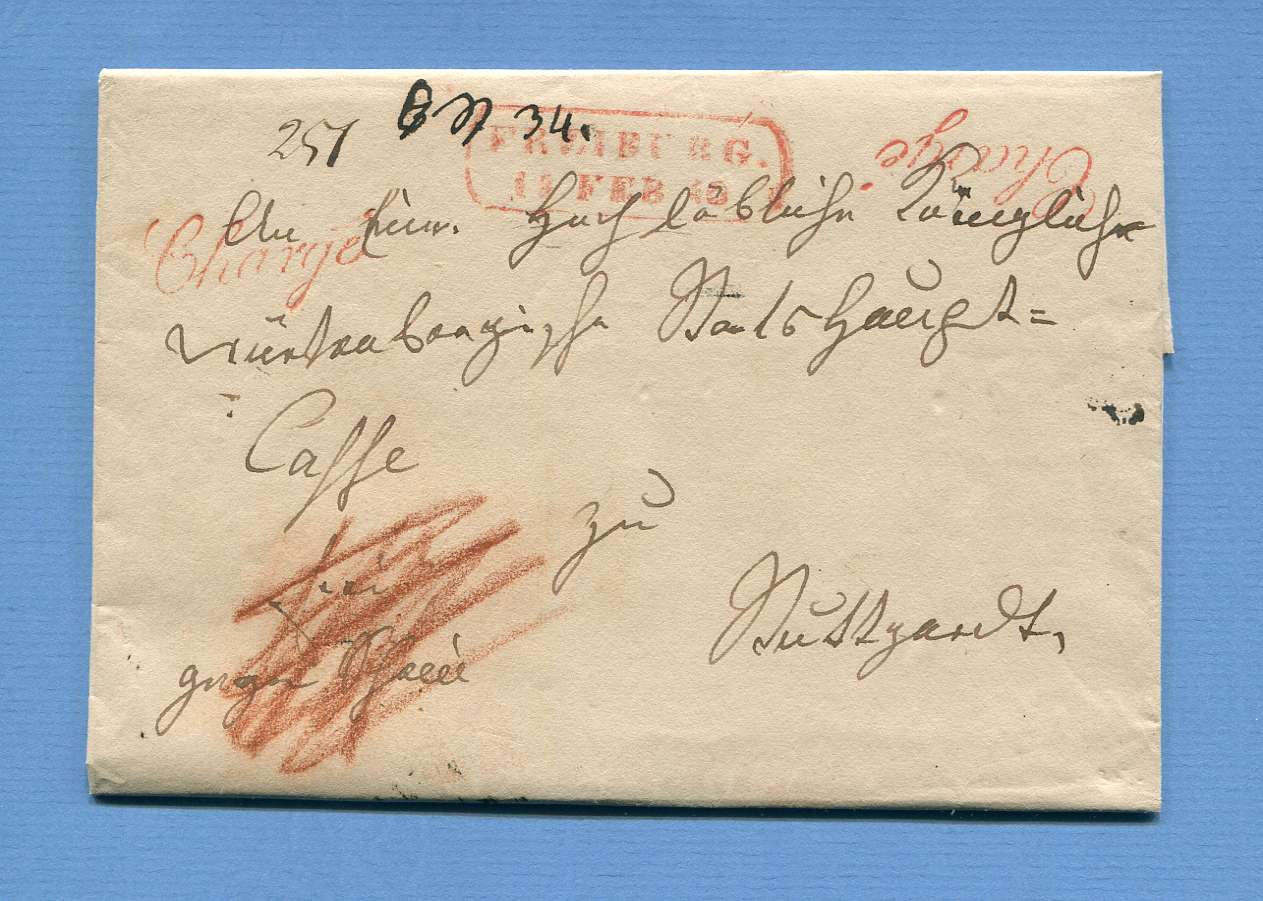 251 34.
FREIBURG.
FEB
Chargé.
Chargé
An Eine Hochlöbliche Königliche
Würtenbergische Staatshaupt=
Casse
zu
frei
Stuttgardt,
gegen Schein